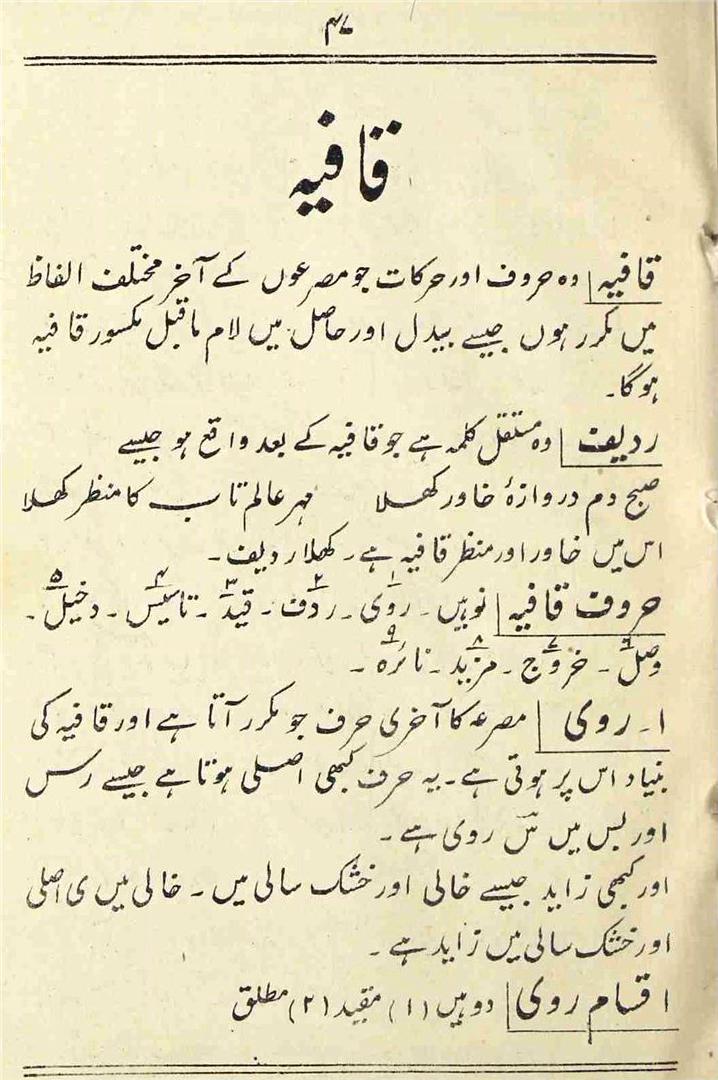 ۴۷
قافیہ
قافیہ | وہ حروف اور حرکات جو مصرعوں کے آخر مختلف الفاظ
میں مکرر ہوں جیسے بیدل اور حاصل میں لام ماقبل مکسور قافیہ
ہوگا۔
ردیف | وہ مستقل کلمہ ہے جو قافیہ کے بعد واقع ہو جیسے
صبح دم دروازۂ خاور کھلا مہر عالم تاب کا منظر کھلا
اس میں خاور اور منظر قافیہ ہے۔ کھلا ردیف۔
حروف قافیہ | نو ہیں۔ روی۱۔ ردف۲۔ قید۳۔ تاسیس۴۔ دخیل۵۔
وصل۶۔ خروج۷۔ مزید۸۔ نائرہ۹۔
۱۔ روی | مصرعہ کا آخری حرف جو مکرر آتا ہے اور قافیہ کی
بنیاد اس پر ہوتی ہے۔ یہ حرف کبھی اصلی ہوتا ہے جیسے رس
اور بس میں س روی ہے۔
اور کبھی زاید جیسے خالی اور خشک سالی میں۔ خالی میں ی اصلی
اور خشک سالی میں زاید ہے۔
اقسام روی | دو ہیں (۱) مقید (۲) مطلق